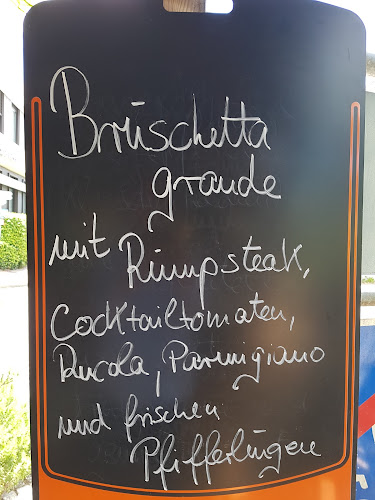 Brüschetta
grande
mit Rumpsteak,
Cocktailtomaten,
Rucola, Parmigiano
und frischen
Pfifferlingen